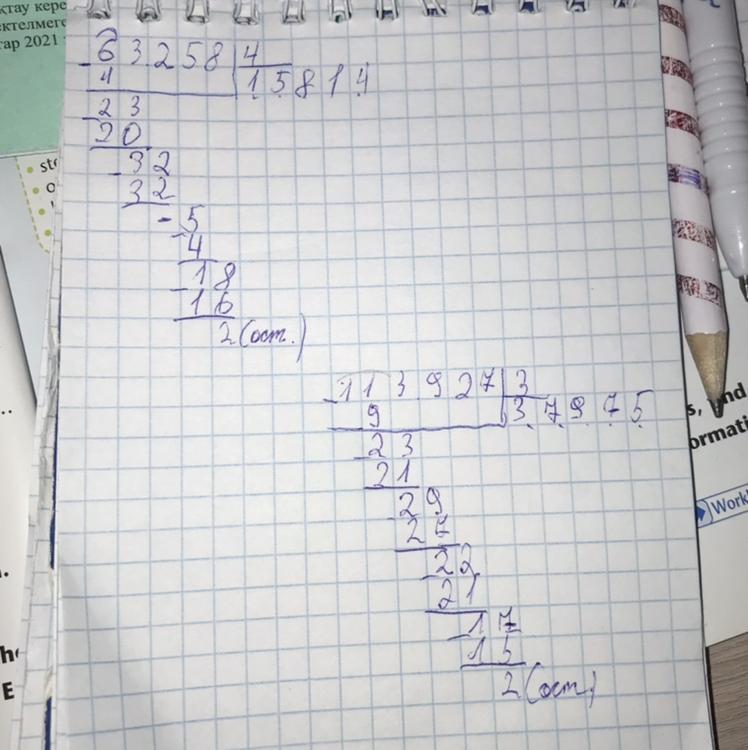 қтау кере
ектелмеге
тар 2021
63258 4
4 15814
23
20
32
32
- 5
4
18
16
2 (ост.)
113927 3
9 37975
23
21
29
27
22
21
17
15
2 (ост.)
s, and
ormati
Work